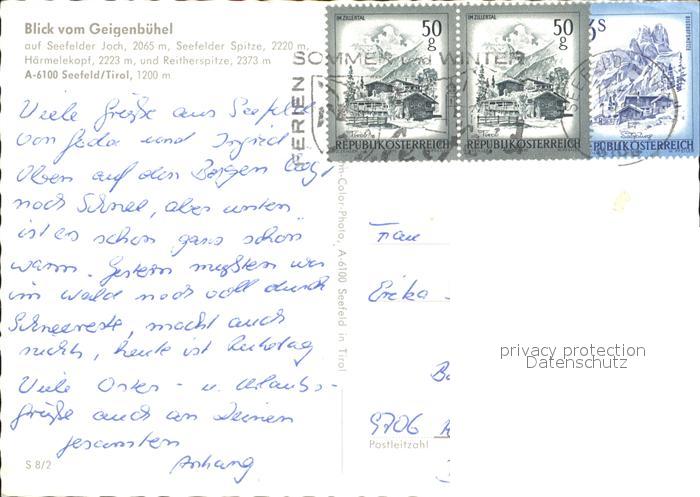 Blick vom Geigenbühel
auf Seefelder Joch, 2065 m, Seefelder Spitze, 2220 m,
Härmelekopf, 2223 m, und Reitherspitze, 2373 m
A-6100 Seefeld/Tirol, 1200 m
Viele Grüße aus Seefeld
von und Ingrid
Oben auf den Bergen liegt
noch Schnee, aber unten
ist es schon ganz schön
warm. Gestern mußten wir
im Wald noch voll durch
Schneereste, macht auch
nichts, heute ist Ruhetag
Viele Oster- u. Urlaubs-
grüße auch an Deinen
gesamten
Anhang
S 8/2
FERIEN
SOMMER und WINTER
IM ZILLERTAL
50 g
Tirol
REPUBLIK ÖSTERREICH
IM ZILLERTAL
50 g
Tirol
REPUBLIK ÖSTERREICH
3 S
Salzburg
REPUBLIK ÖSTERREICH
m-Color-Photo, A-6100 Seefeld in Tirol
Frau
Erika
9706
Postleitzahl
privacy protection
Datenschutz